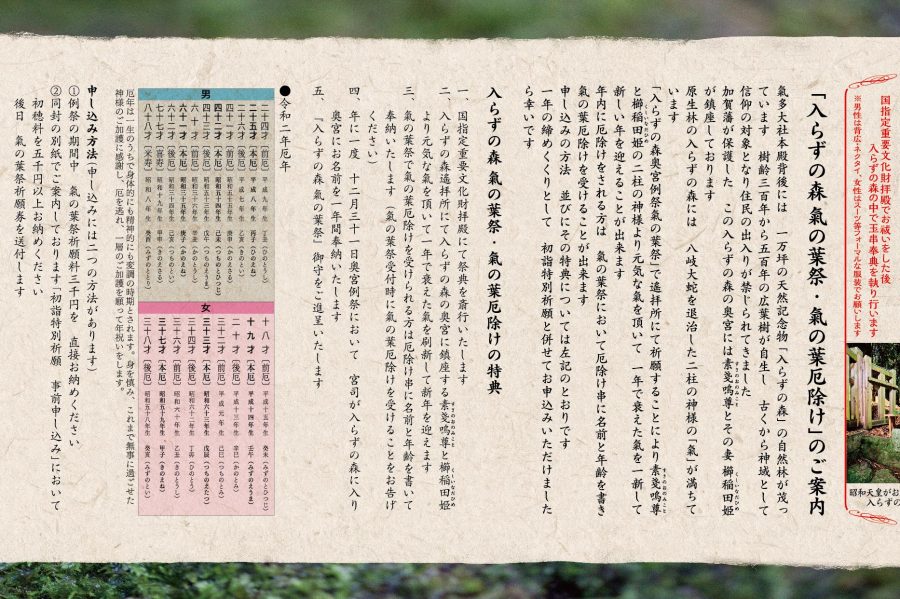 国指定重要文化財拝殿でお祓いをした後
入らずの森の中で玉串奉奠を執り行います
※男性は背広・ネクタイ、女性はスーツ等フォーマルな服装でお願いします
昭和天皇がお
入らずの
「入らずの森 氣の葉祭・氣の葉厄除け」のご案内
氣多大社本殿背後には 一万坪の天然記念物「入らずの森」の自然林が茂っ
ています 樹齢三百年から五百年の広葉樹が自生し 古くから神域として
信仰の対象となり住民の出入りが禁じられてきました
加賀藩が保護した この入らずの森の奥宮には素戔嗚尊とその妻 櫛稲田姫
が鎮座しております
原生林の入らずの森には 八岐大蛇を退治した二柱の神様の「氣」が満ちて
います
「入らずの森奥宮例祭氣の葉祭」で遥拝所にて祈願することにより素戔嗚尊
と櫛稲田姫の二柱の神様より元気な氣を頂いて 一年で衰えた氣を一新して
新しい年を迎えることが出来ます
年内に厄除けをされる方は 氣の葉祭において厄除け串に名前と年齢を書き
氣の葉厄除けを受けることが出来ます
申し込みの方法 並びにその特典については左記のとおりです
一年の締めくくりとして 初詣特別祈願と併せてお申込みいただけました
ら幸いです
入らずの森 氣の葉祭・氣の葉厄除けの特典
一、国指定重要文化財拝殿にて祭典を斎行いたします
二、入らずの森遥拝所にて入らずの森の奥宮に鎮座する素戔嗚尊と櫛稲田姫
より元気な氣を頂いて一年で衰えた氣を刷新して新年を迎えます
三、氣の葉祭で氣の葉厄除けを受けられる方は厄除け串に名前と年齢を書いて
奉納いたします（氣の葉祭受付時に氣の葉厄除けを受けることをお告げ
ください）
四、年に一度 十二月三十一日奥宮例祭において 宮司が入らずの森に入り
奥宮にお名前を一年間奉納いたします
五、「入らずの森氣の葉祭」御守をご進呈いたします
●令和二年厄年
男
二十四才〔前厄〕平成九年生 丁丑（ひのとうし）
二十五才〔本厄〕平成八年生 丙子（ひのえね）
二十六才〔後厄〕平成七年生 乙亥（きのとい）
四十一才〔前厄〕昭和五十五年生 庚申（かのえさる）
四十二才〔本厄〕昭和五十四年生 己未（つちのとひつじ）
四十三才〔後厄〕昭和五十三年生 戊午（つちのえうま）
六十才〔前厄〕昭和三十六年生 辛丑（かのとうし）
六十一才〔本厄〕昭和三十五年生 庚子（かのえね）
六十二才〔後厄〕昭和三十四年生 己亥（つちのとい）
七十七才〔喜寿〕昭和十九年生 甲申（きのえさる）
八十八才〔米寿〕昭和八年生 癸酉（みずのととり）
女
十八才〔前厄〕平成十五年生 癸未（みずのとひつじ）
十九才〔本厄〕平成十四年生 壬午（みずのえうま）
二十才〔後厄〕平成十三年生 辛巳（かのとみ）
三十二才〔前厄〕平成元年生 己巳（つちのとみ）
三十三才〔本厄〕昭和六十三年生 戊辰（つちのえたつ）
三十四才〔後厄〕昭和六十二年生 丁卯（ひのとう）
三十六才〔前厄〕昭和六十年生 乙丑（きのとうし）
三十七才〔本厄〕昭和五十九年生 甲子（きのえね）
三十八才〔後厄〕昭和五十八年生 癸亥（みずのとい）
厄年は一生のうちで身体的にも精神的にも変調の時期とされます。身を慎み、これまで無事に過ごせた
神様のご加護に感謝し、厄を逃れ、一層のご加護を願って年祝いをします。
申し込み方法（申し込みには二つの方法があります）
①例祭の期間中 氣の葉祈願料三千円を 直接お納めください
②同封の別紙でご案内しております「初詣特別祈願 事前申し込み」において
初穂料を五千円以上お納めください
後日 氣の葉祭祈願券を送付します